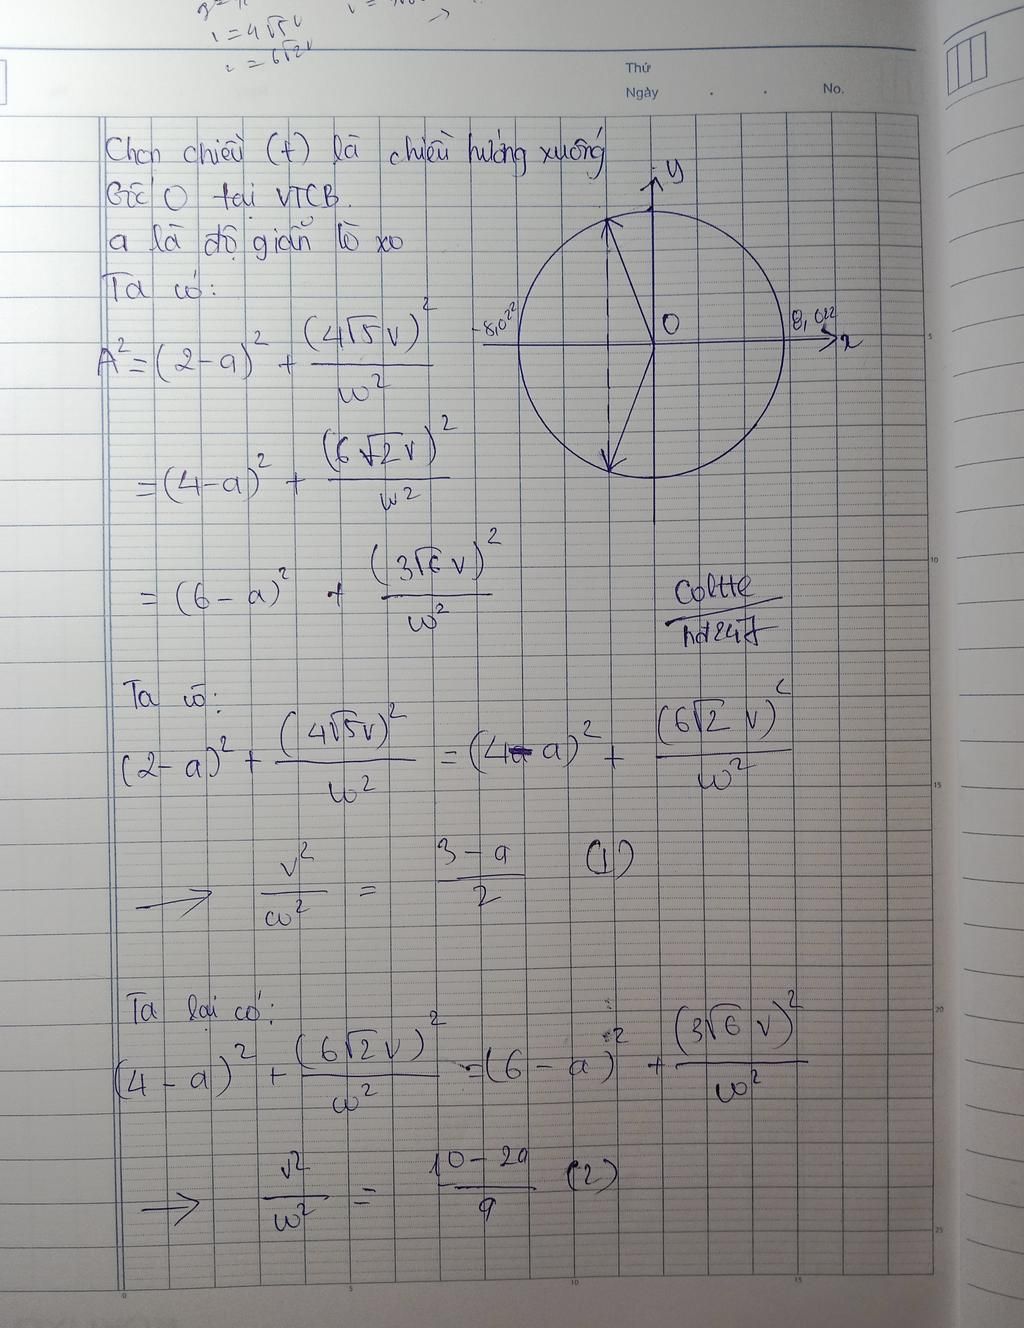 = 4√5 v
= 6√2 v
Thứ
Ngày . . No.
Chọn chiều (+) là chiều hướng xuống
Gốc O tại VTCB.
a là độ giãn lò xo
Ta có:
A² = (2-a)² + (4√5v)²/ω²
= (4-a)² + (6√2v)²/ω²
= (6-a)² + (3√6 v)²/ω²
y
-8,022
O
8,022
x
Ta có:
(2-a)² + (4√5v)²/ω² = (4-a)² + (6√2 v)²/ω²
→ v²/ω² = 3-a/2 (1)
Ta lại có:
(4-a)² + (6√2v)²/ω² = (6-a)² + (3√6 v)²/ω²
→ v²/ω² = 10-2a/9 (2)
5
10
15
20
25
0
5
10
15